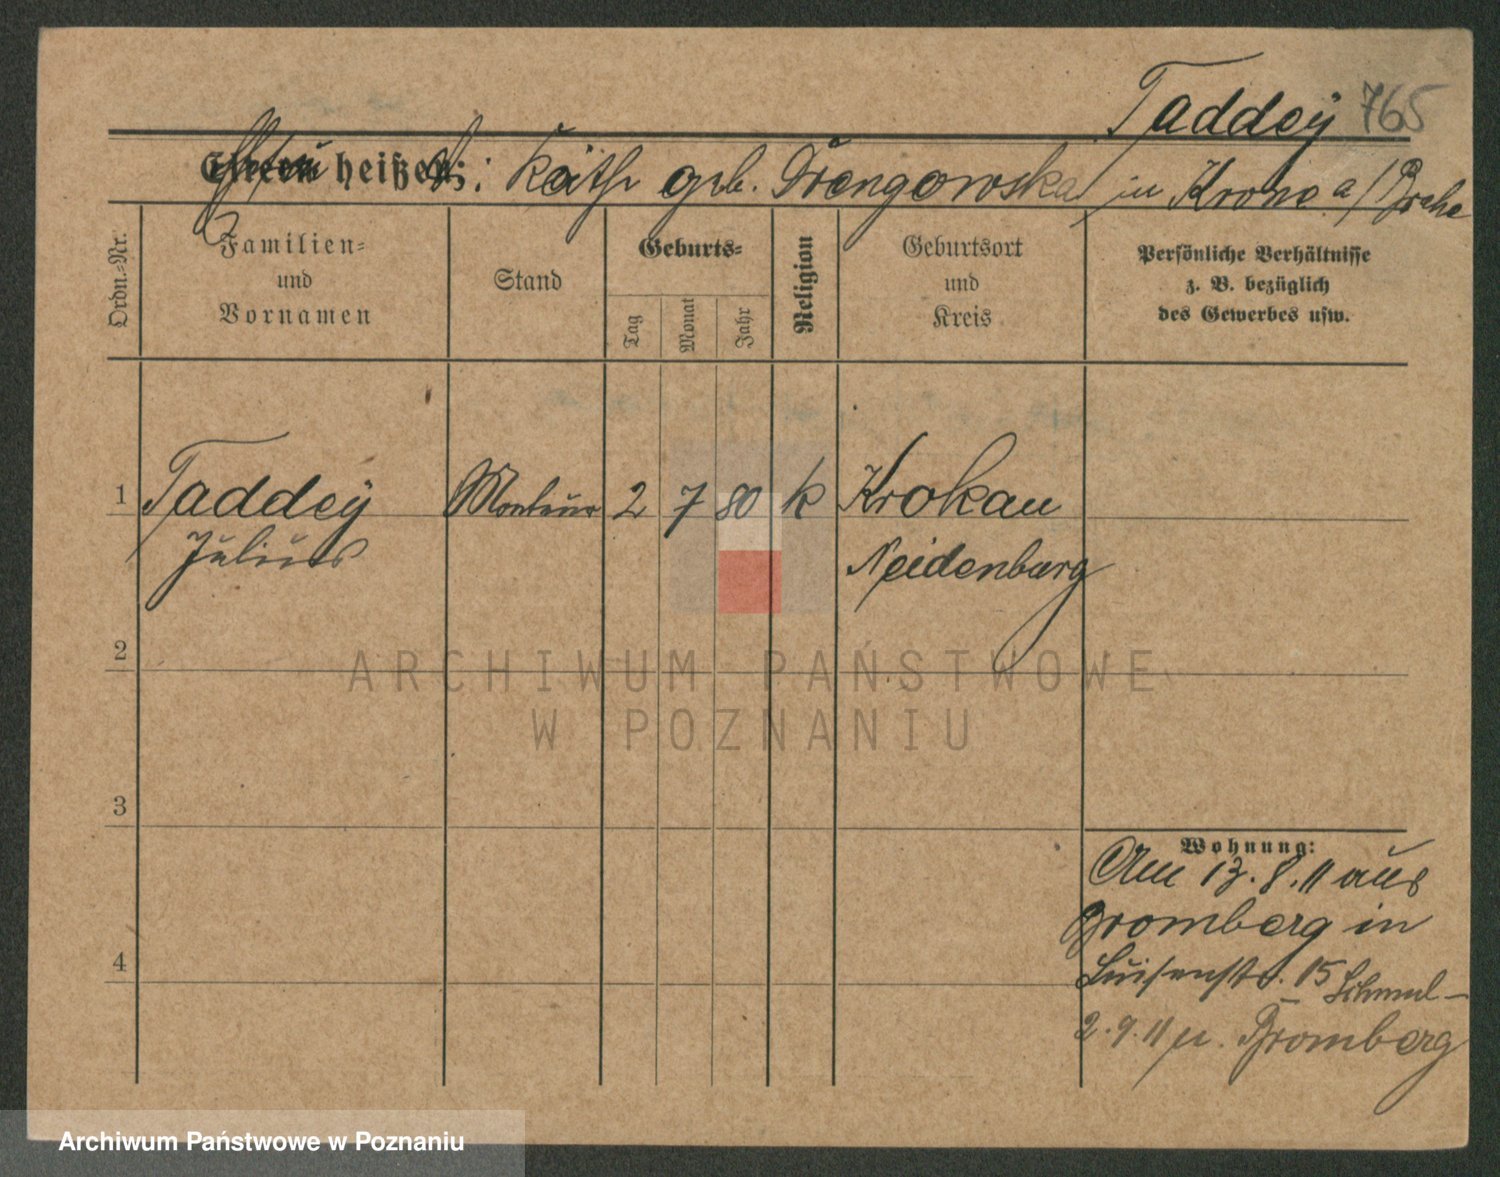 Taddey 765
Eltern heißen: Käthe geb. Drengowska in Krone a/Brahe
Ordn.-Nr.
Familien-
und
Vornamen
Stand
Geburts-
Tag
Monat
Jahr
Religion
Geburtsort
und
Kreis
Persönliche Verhältnisse
z. B. bezüglich
des Gewerbes usw.
1 Taddey Monteur 2 7 80 k Krokau
Julius Neidenburg
2
3
4
Wohnung:
Am 13.8.11 aus
Bromberg in
Luisenstr. 15
2.9.11 n. Bromberg
ARCHIWUM PAŃSTWOWE
W POZNANIU
Archiwum Państwowe w Poznaniu